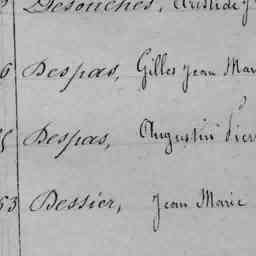 Desouches, Aristide J
6 Despas, Gilles Jean Mar
Despas, Augustin Pier
53 Dessier, Jean Marie